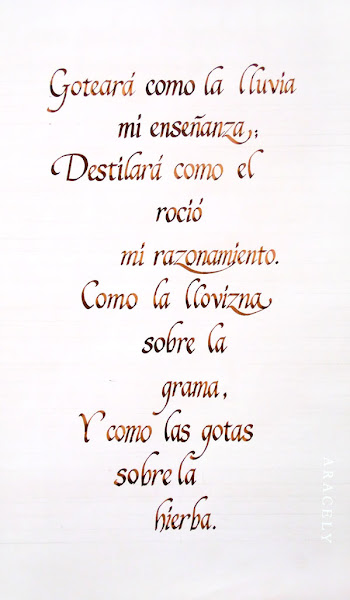 Goteará como la lluvia
mi enseñanza;
Destilará como el
roció
mi razonamiento.
Como la llovizna
sobre la
grama,
Y como las gotas
sobre la
hierba.
ARACELY